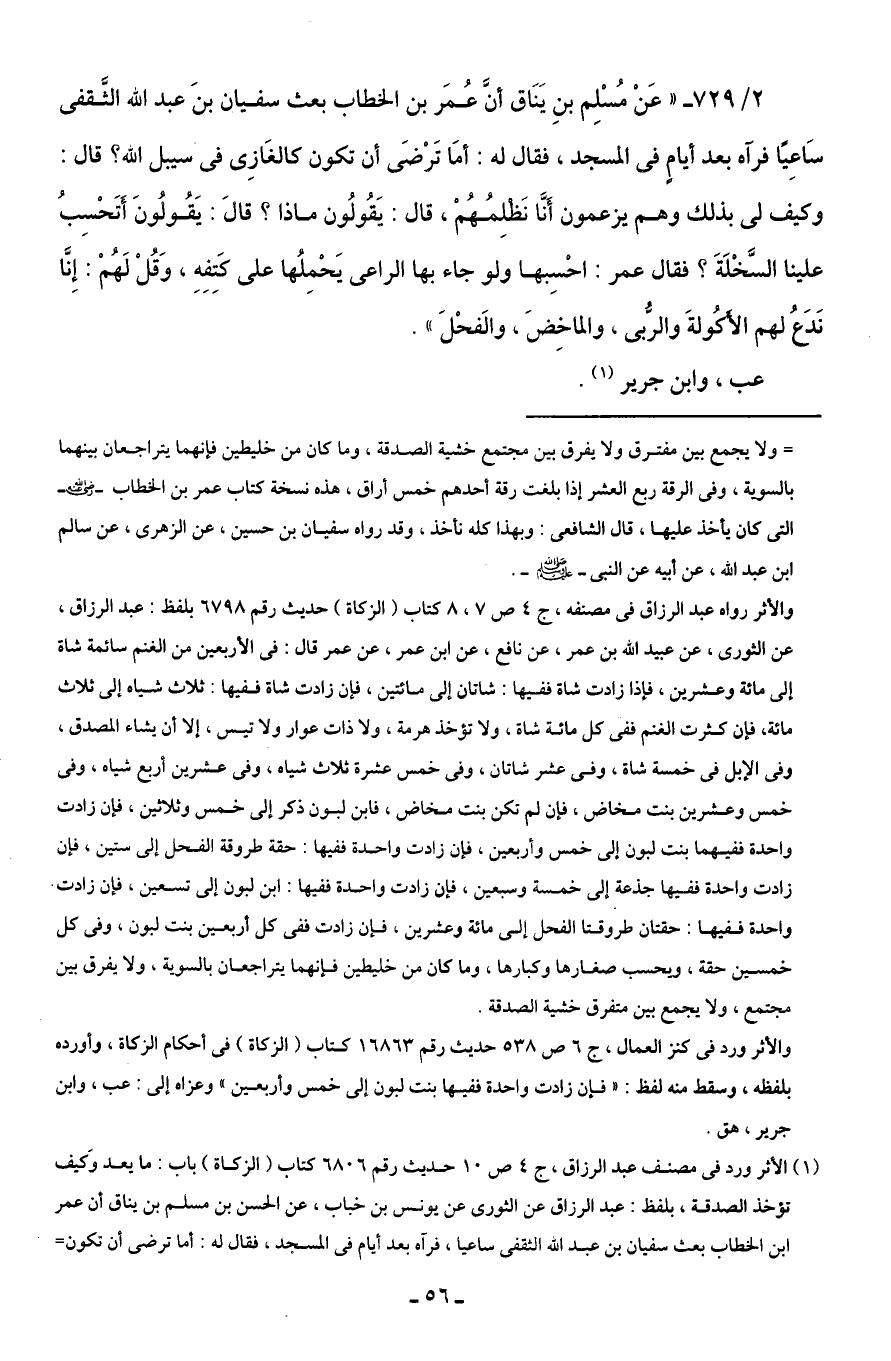 ٢/ ٧٢٩ـ « عَنْ مُسْلِم بنِ يَنَاق أنَّ عُمَر بن الخطاب بعث سفيان بنَ عبد الله الثَّقفى
سَاعِيًا فرآه بعد أيامٍ فى المسجد ، فقال له : أمَا تَرْضَى أن تكون كالغَازِى فى سبيل الله؟ قال :
وكيف لى بذلك وهم يزعمون أَنَّا نَظْلِمُهُمْ ، قال : يَقُولُون ماذا ؟ قالَ : يَقُولُونَ أَتَحْسِبُ
علينا السَّخْلَةَ ؟ فقال عمر : احْسِبها ولو جاء بها الراعى يَحْمِلُها على كَتِفِهِ ، وَقُلْ لَهُمْ : إِنَّا
نَدَعُ لهم الأكُولةَ والرُّبى ، والماخِضَ ، والفَحْلَ » .
عب ، وابن جرير (١) .
= ولا يجمع بين مفترق ولا يفرق بين مجتمع خشية الصدقة ، وما كان من خليطين فإنهما يتراجعان بينهما
بالسوية ، وفى الرقة ربع العشر إذا بلغت رقة أحدهم خمس أراق ، هذه نسخة كتاب عمر بن الخطاب ـ رضي الله عنه ـ
التى كان يأخذ عليها ، قال الشافعى : وبهذا كله نأخذ ، وقد رواه سفيان بن حسين ، عن الزهرى ، عن سالم
ابن عبد الله ، عن أبيه عن النبى ـ ﷺ ـ .
والأثر رواه عبد الرزاق فى مصنفه ، ج ٤ ص ٧ ، ٨ كتاب ( الزكاة ) حديث رقم ٦٧٩٨ بلفظ : عبد الرزاق ،
عن الثورى ، عن عبيد الله بن عمر ، عن نافع ، عن ابن عمر ، عن عمر قال : فى الأربعين من الغنم سائمة شاة
إلى مائة وعشرين ، فإذا زادت شاة ففيها : شاتان إلى مائتين ، فإن زادت شاة ففيها : ثلاث شياه إلى ثلاث
مائة، فإن كثرت الغنم ففى كل مائة شاة ، ولا تؤخذ هرمة ، ولا ذات عوار ولا تيس ، إلا أن يشاء المصدق ،
وفى الإبل فى خمسة شاة ، وفى عشر شاتان ، وفى خمس عشرة ثلاث شياه ، وفى عشرين أربع شياه ، وفى
خمس وعشرين بنت مخاض ، فإن لم تكن بنت مخاض ، فابن لبون ذكر إلى خمس وثلاثين ، فإن زادت
واحدة ففيهما بنت لبون إلى خمس وأربعين ، فإن زادت واحدة ففيها : حقة طروقة الفحل إلى ستين ، فإن
زادت واحدة ففيها جذعة إلى خمسة وسبعين ، فإن زادت واحدة ففيها : ابن لبون إلى تسعين ، فإن زادت
واحدة ففيها : حقتان طروقتا الفحل إلى مائة وعشرين ، فإن زادت ففى كل أربعين بنت لبون ، وفى كل
خمسين حقة ، ويحسب صغارها وكبارها ، وما كان من خليطين فإنهما يتراجعان بالسوية ، ولا يفرق بين
مجتمع ، ولا يجمع بين متفرق خشية الصدقة .
والأثر ورد فى كنز العمال ، ج ٦ ص ٥٣٨ حديث رقم ١٦٨٦٣ كتاب ( الزكاة ) فى أحكام الزكاة ، وأورده
بلفظه ، وسقط منه لفظ : « فإن زادت واحدة ففيها بنت لبون إلى خمس وأربعين » وعزاه إلى : عب ، وابن
جرير ، هق .
(١) الأثر ورد فى مصنف عبد الرزاق ، ج ٤ ص ١٠ حديث رقم ٦٨٠٦ كتاب ( الزكاة ) باب : ما يعد وكيف
تؤخذ الصدقة ، بلفظ : عبد الرزاق عن الثورى عن يونس بن خباب ، عن الحسن بن مسلم بن يناق أن عمر
ابن الخطاب بعث سفيان بن عبد الله الثقفى ساعيا ، فرآه بعد أيام فى المسجد ، فقال له : أما ترضى أن تكون=
ـ ٥٦ ـ